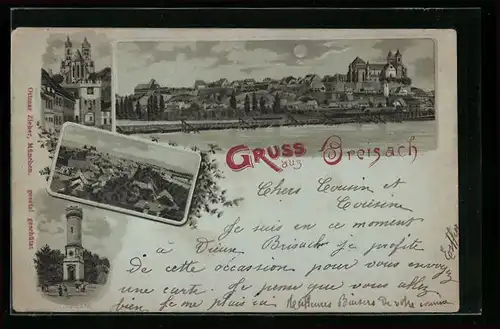 Gruss
aus
Breisach
Chers Cousin et
Cousine
Je suis en ce moment
à Vieux Brisach je profite
de cette occasion pour vous envoyer
une carte. Je pense que vous allez
bien, je me plais ici Meilleures Baisers de votre cousine
Ottmar Zieher, München. gesetzl geschützt